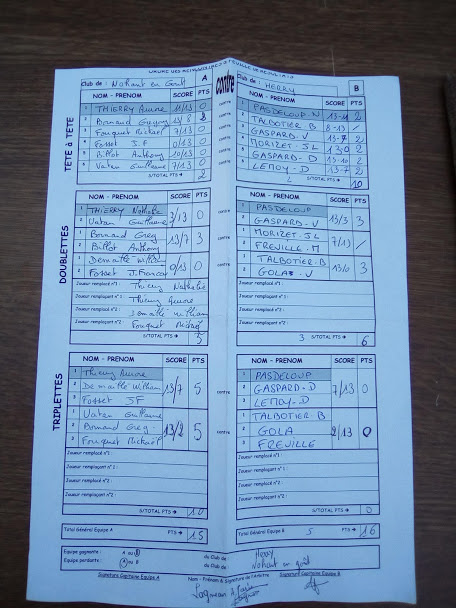 ORDRE DES RENCONTRES / FEUILLE DE RESULTATS
Club de : Nohant en Goût A contre Club de : HERRY B
TETE à TETE
NOM - PRENOM SCORE PTS NOM - PRENOM SCORE PTS
1 THIERRY Aurore 11/13 0 contre 1 PASDELOUP N 13-11 2
2 Bornand Gregory 13/8 2 contre 2 TALBOTIER B 8-13 /
3 Fouquet Mickael 7/13 0 contre 3 GASPARD-V 13-7 2
4 Fosset J.F 0/13 0 contre 4 MORIZET-JL 13-0 2
5 Billot Anthony 10/13 0 contre 5 GASPARD-D 13-10 2
6 Vatan Guillaume 7/13 0 contre 6 LEMOY-D 13-7 2
S/TOTAL PTS 2 S/TOTAL PTS 10
DOUBLETTES
NOM - PRENOM SCORE PTS NOM - PRENOM SCORE PTS
1 THIERRY Nathalie 3/13 0 contre 1 PASDELOUP 13/3 3
2 Vatan Guillaume 2 GASPARD-V
1 Bornand Greg 13/7 3 contre 1 MORIZET-JL 7/13 /
2 Billot Anthony 2 FREVILLE-M
1 Demaille William 0/13 0 contre 1 TALBOTIER-B 13/0 3
2 Fosset J.Francois 2 GOLA-V
Joueur remplacé n°1 : Thierry Nathalie Joueur remplacé n°1 :
Joueur remplaçant n°1 : Thierry Aurore Joueur remplaçant n°1 :
Joueur remplacé n°2 : Demaille William Joueur remplacé n°2 :
Joueur remplaçant n°2 : Fouquet Mickael Joueur remplaçant n°2 :
S/TOTAL PTS 3 3 S/TOTAL PTS 6
TRIPLETTES
NOM - PRENOM SCORE PTS NOM - PRENOM SCORE PTS
1 Thierry Aurore 1 PASDELOUP
2 Demaille William 13/7 5 contre 2 GASPARD-D 7/13 0
3 Fosset JF 3 LEMOY-D
1 Vatan Guillaume 1 TALBOTIER B
2 Bornand Greg- 13/2 5 contre 2 GOLA 2/13 0
3 Fouquet Mickaël 3 FREVILLE
Joueur remplacé n°1 : Joueur remplacé n°1 :
Joueur remplaçant n°1 : Joueur remplaçant n°1 :
Joueur remplacé n°2 : Joueur remplacé n°2 :
Joueur remplaçant n°2 : Joueur remplaçant n°2 :
S/TOTAL PTS 10 S/TOTAL PTS 0
Total Général Equipe A PTS 15 Total Général Equipe B 5 PTS 16
Equipe gagnante : A ou B du Club de : Herry
Equipe perdante : A ou B du Club de : Nohant en goût
Signature Capitaine Equipe A Nom - Prénom & Signature de l'Arbitre Signature Capitaine Equipe B